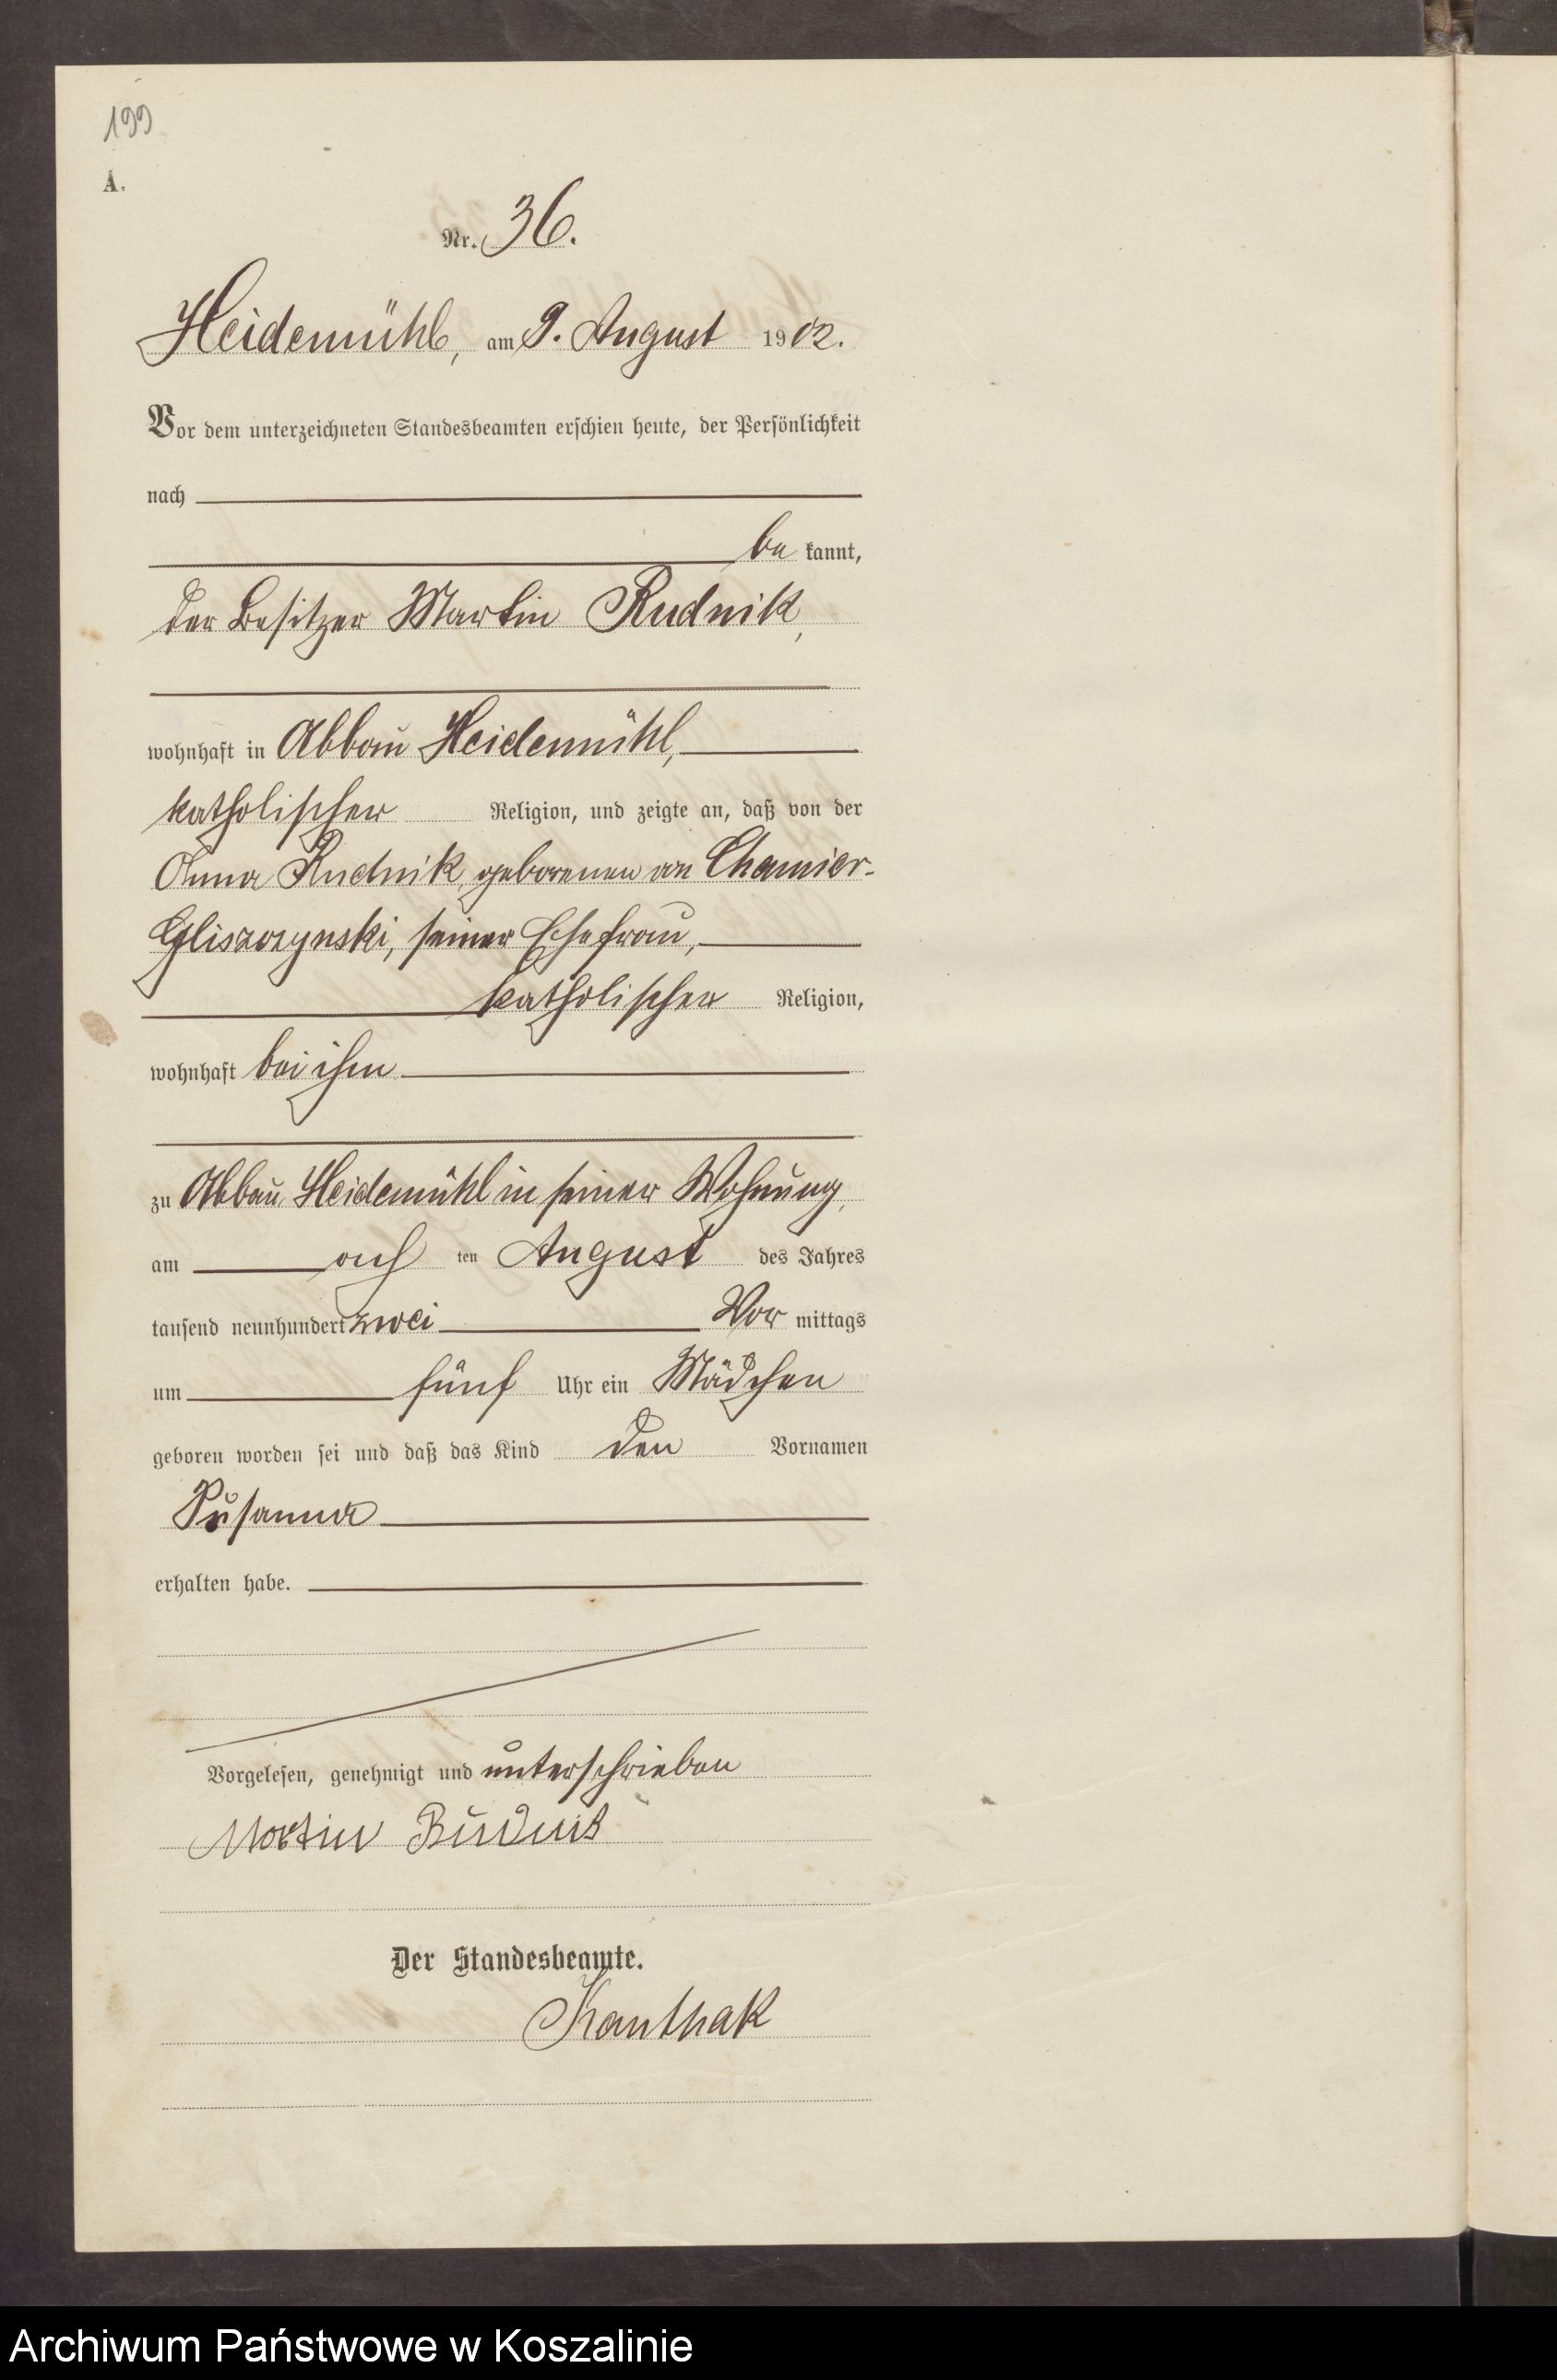 199
A.
Nr. 36.
Heidemühl, am 9. August 1902.
Vor dem unterzeichneten Standesbeamten erschien heute, der Persönlichkeit
nach
be kannt,
der Besitzer Martin Rudnik,
wohnhaft in Abbau Heidemühl,
katholischer Religion, und zeigte an, daß von der
Anna Rudnik, geborenen von Chamier-
Gliszczynski, seiner Ehefrau,
katholischer Religion,
wohnhaft bei ihm
zu Abbau Heidemühl in seiner Wohnung,
am ach ten August des Jahres
tausend neunhundert zwei Vor mittags
um fünf Uhr ein Mädchen
geboren worden sei und daß das Kind den Vornamen
Susanna
erhalten habe.
Vorgelesen, genehmigt und unterschrieben
Martin Rudnik
Der Standesbeamte.
Kanthak
Archiwum Państwowe w Koszalinie